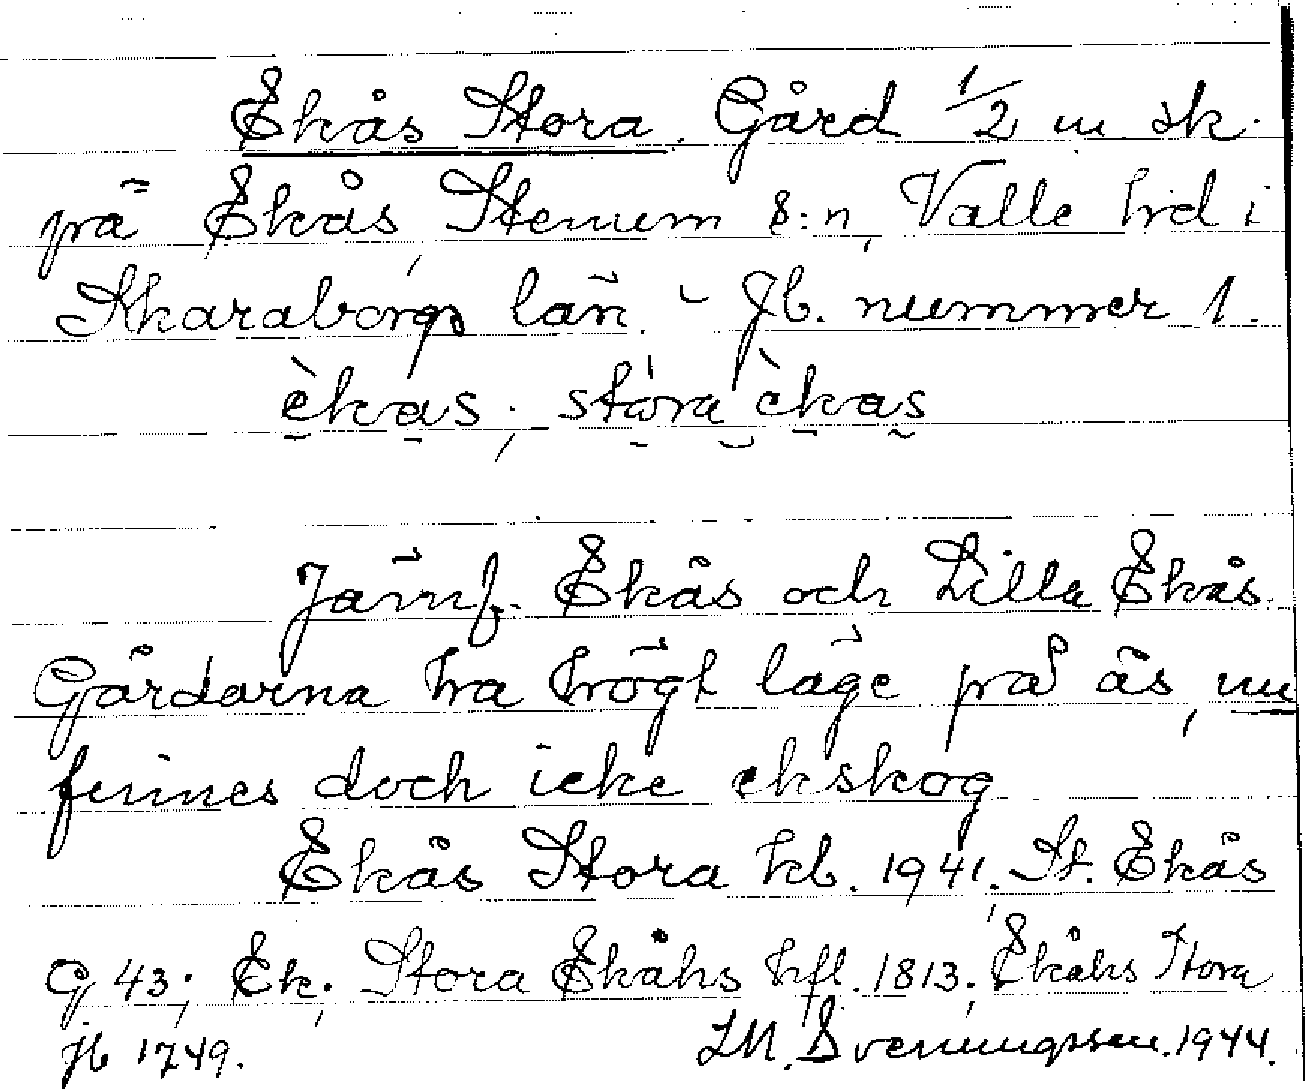 Ekås Stora. Gård 1/2 m sk.
på Ekås, Stenum s:n, Valle hd i
Skaraborgs län. - Jb. nummer 1.
èkas; stóra èkas
Jämf. Ekås och Lilla Ekås.
Gårdarna ha högt läge på ås, nu
finnes doch icke ekskog
Ekås Stora kb. 1941. St. Ekås
G 43; Ek; Stora Ekåhs hfl. 1813; Ekåhs Stora
jb 1749.
Sveningsson. 1944.